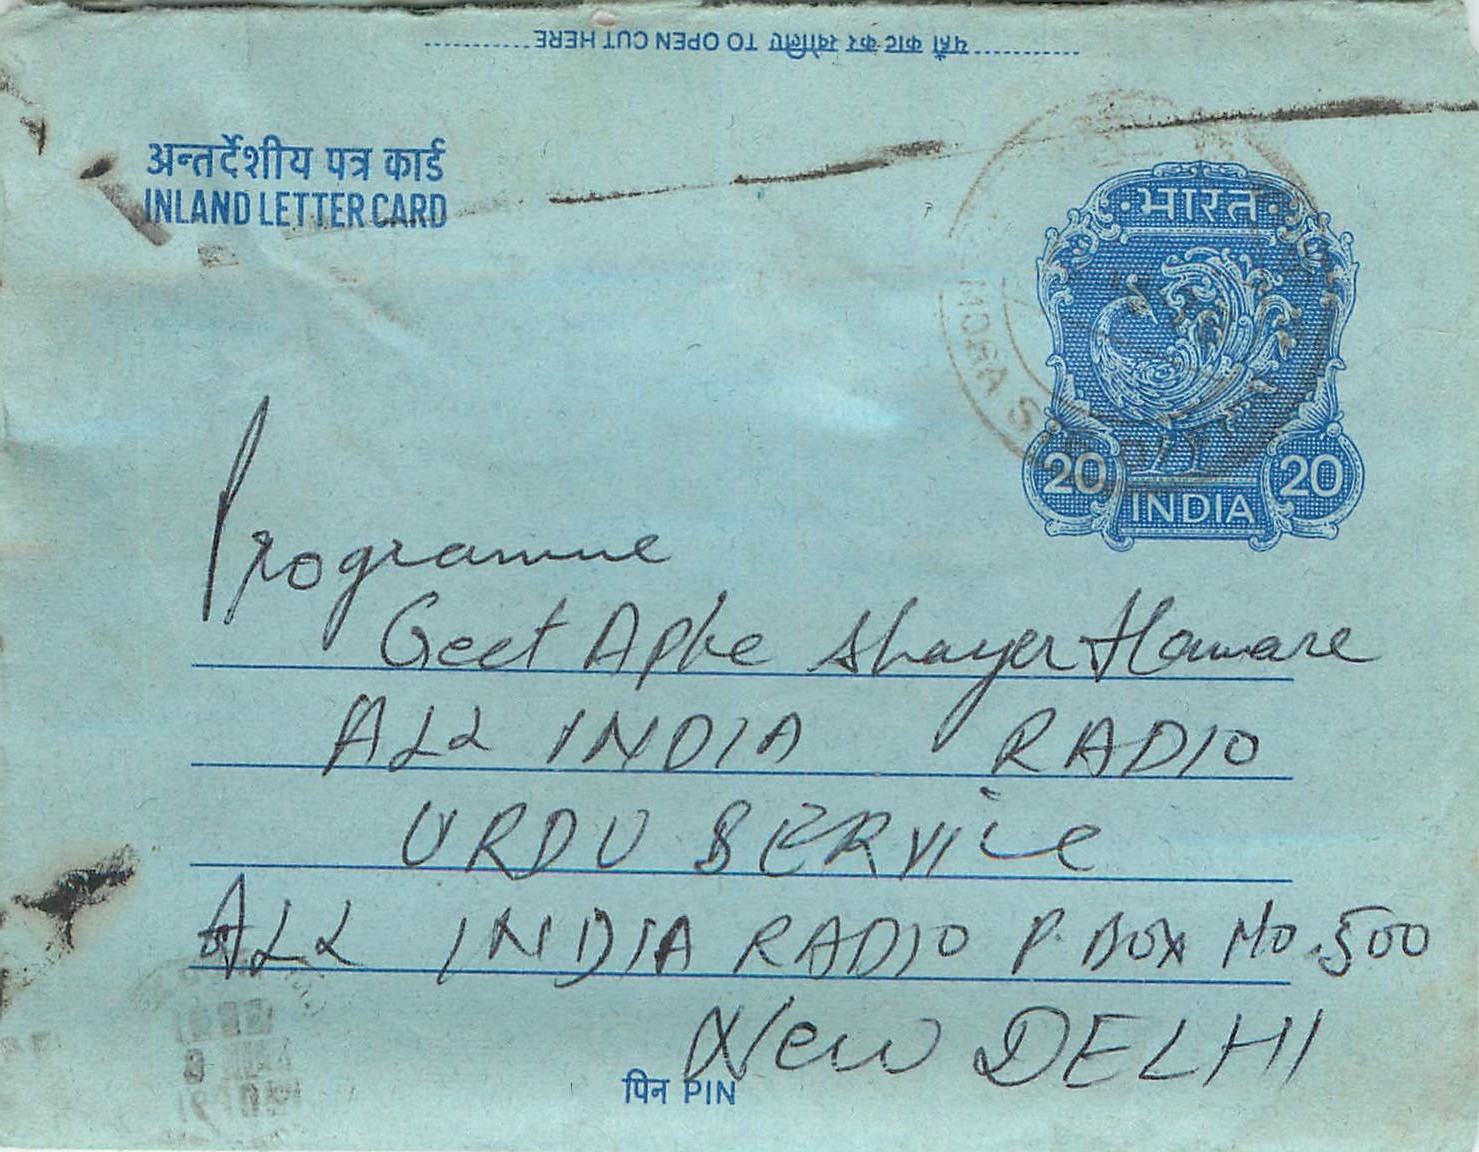 यहाँ काट कर खोलिए TO OPEN CUT HERE
अन्तर्देशीय पत्र कार्ड
INLAND LETTER CARD
भारत
20 20
INDIA
MOGA
Programme
Geet Apke Shayer Hamare
ALL INDIA RADIO
URDU SERVICE
ALL INDIA RADIO P. BOX No. 500
New DELHI
पिन PIN